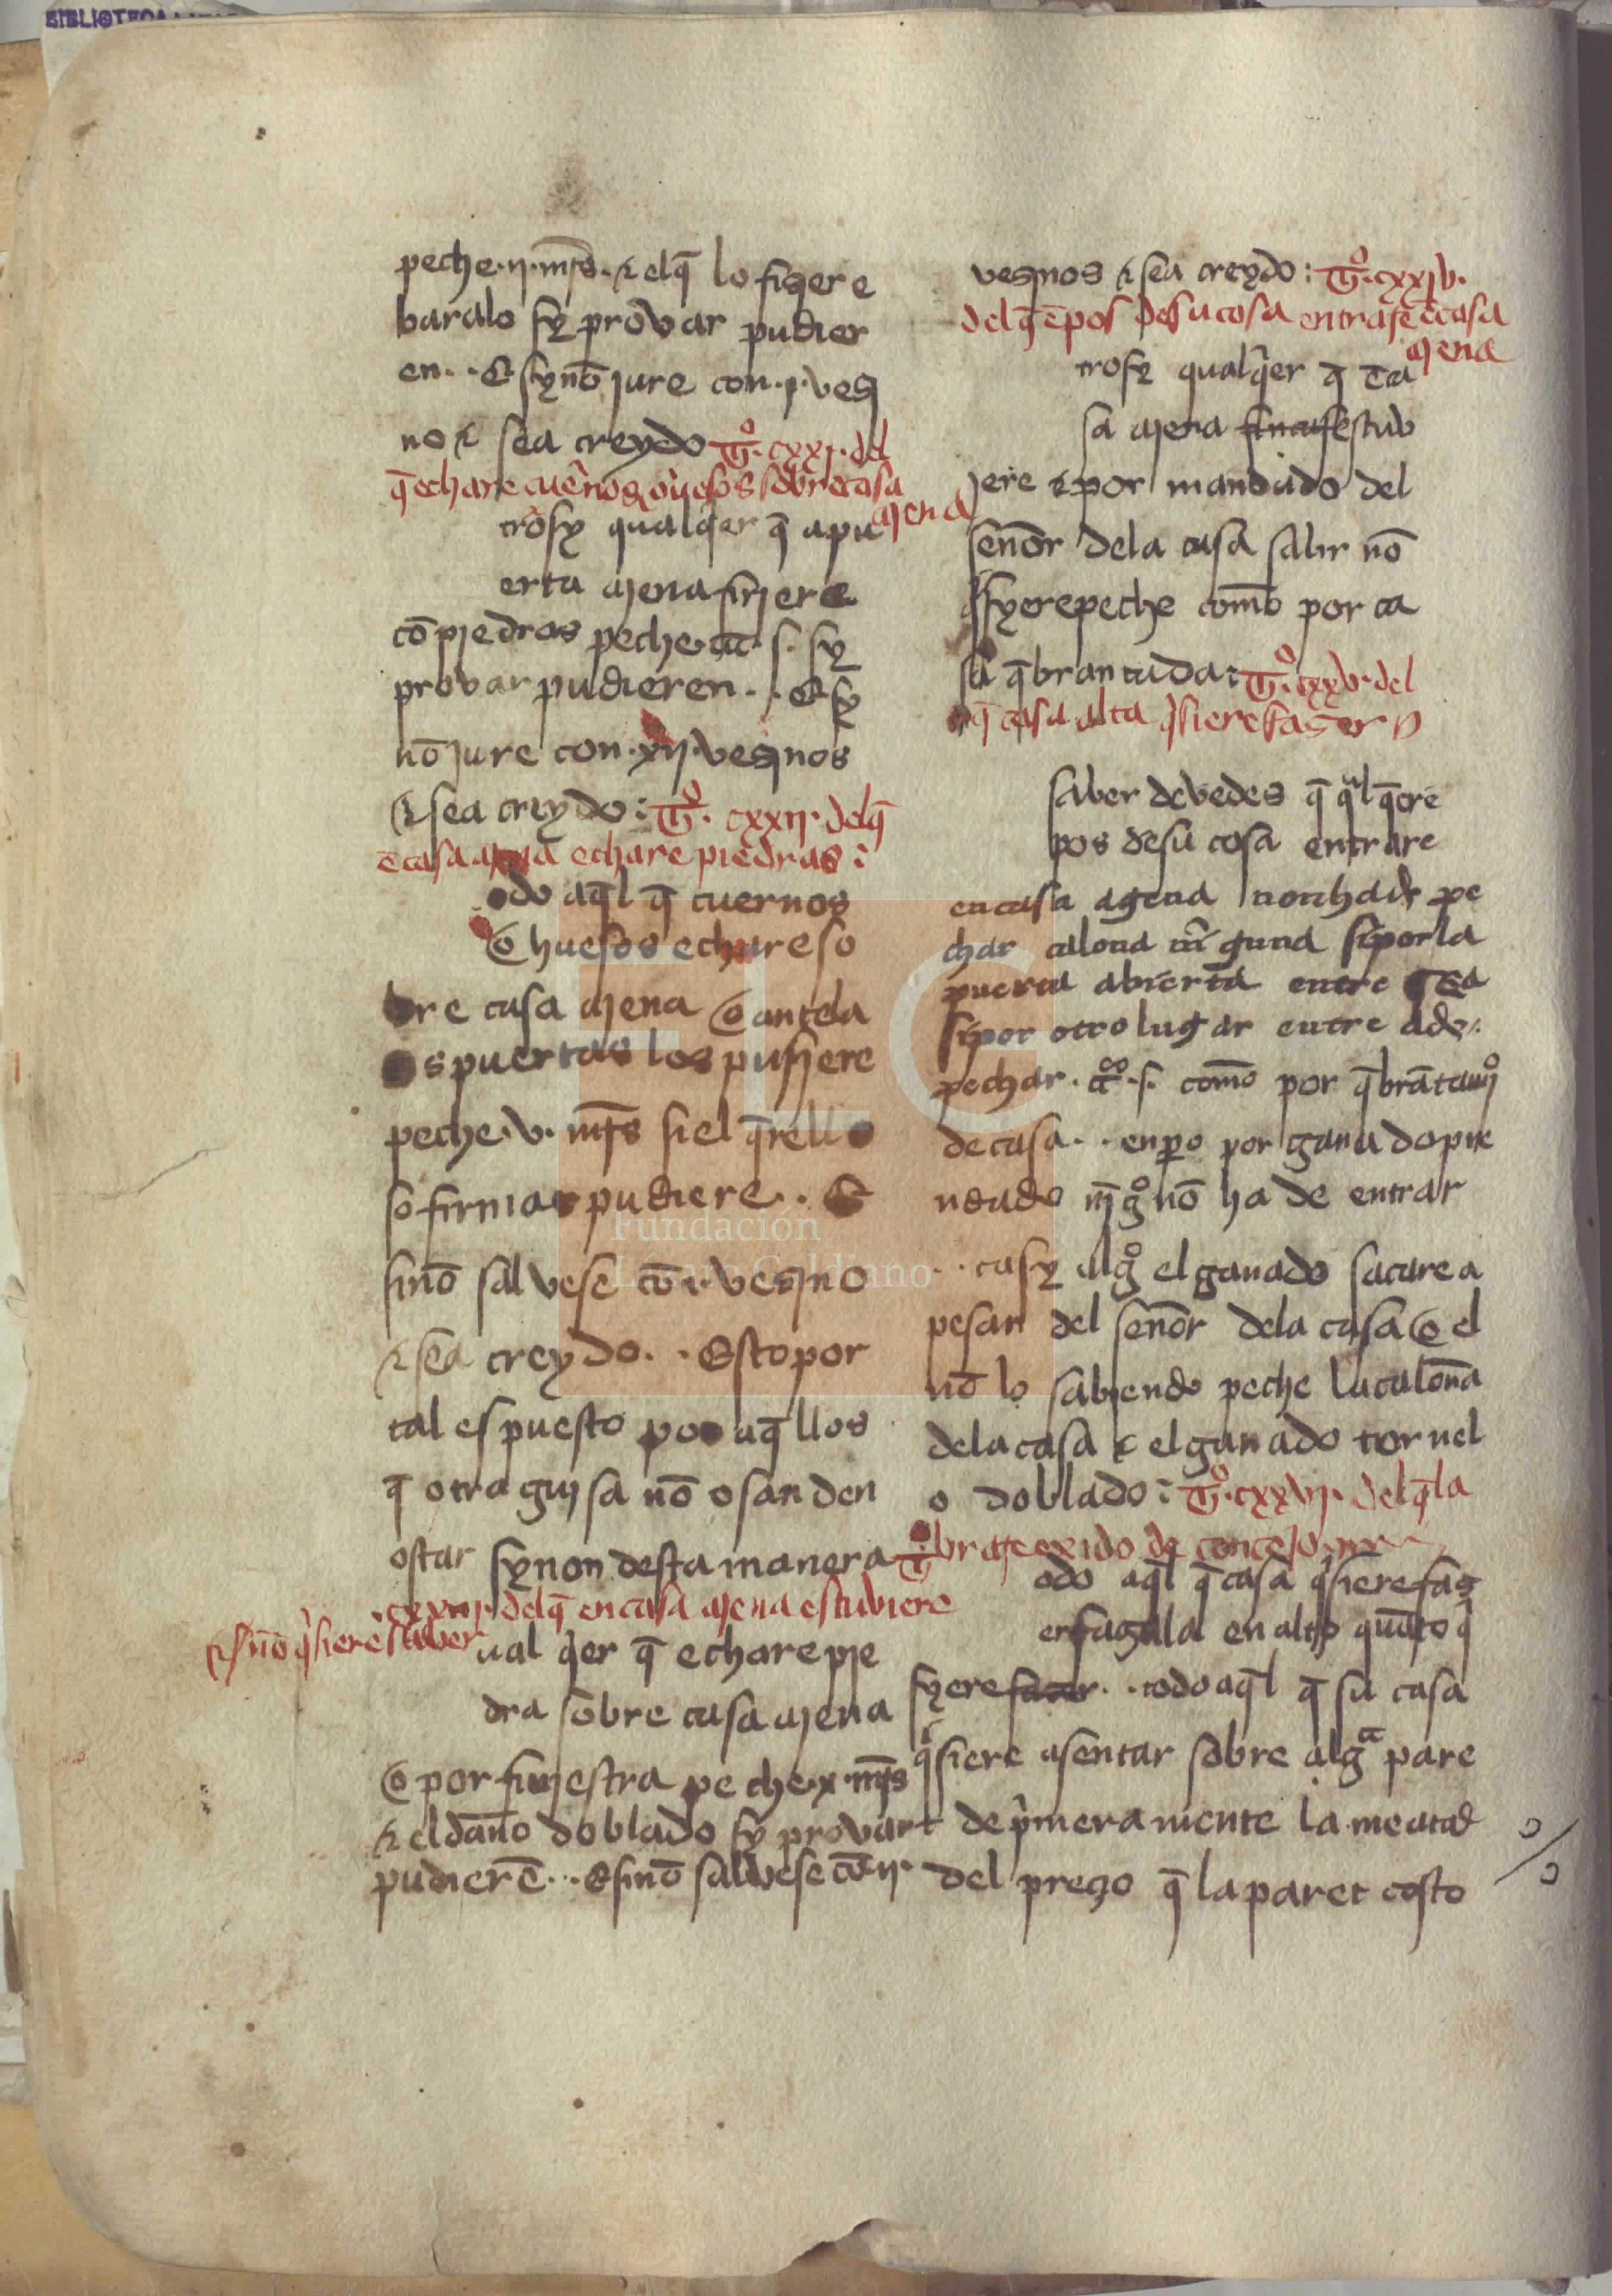 BIBLIOTECA
peche·ij·mr̄s·⁊ elq̄ lo fiziere
baralo sy provar pudier
en··E sy nō jure con·j·vezi
no ⁊ sea creydo Tº·cxxj·del
q̄ echare cuernos o huesos sobre casa
ajena
trosy qualq̇er q̄ apu
erta ajena firiere
cō piedras peche·cc·s·sy
provar pudieren··E sy
nō jure con·xij·vezinos
⁊ sea creydo: Tº·cxxij·delq̄
ē casa ajena echare piedras:
odo aq̄l q̄ cuernos
o huesos echare so
bre casa ajena o antela
s puertas los pusiere
peche·v·mr̄s si el q̄rello
so firmar pudiere··E
sinō salvese cō·j·vezino
⁊ sea creydo··Esto por
tal es puesto por aq̄llos
q̄ otra guisa nō osan den
ostar synon desta manera Tº
cxxiij·delq̄ en casa ajena estuviere
⁊ nō q̇siere sallir
ual q̇er q̄ echare pie
dra sobre casa ajena
o por finiestra peche·x·mr̄s
⁊ el daño doblado sy provar
pudierē··E sinō salvese cō·ij·
vezinos ⁊ sea creydo: Tº·cxxiv·
delq̄ ē pos de su cosa entrase ē casa
ajena
trosy qualq̇er q̄ ē ca
sa ajena estuv
iere ⁊ por mandado del
señor dela casa salir nō
q̇syere peche comō por ca
sa q̄brantada: Tº·cxxv·del
q̄ casa alta q̇siere fazer
saber devedes q̄ qᵃl q̄ ē re
pos de su cosa entrare
en casa agena non ha de pe
char calona nīguna si por la
puerta abierta entre ⁊ ca
si por otro lugar entre ade
pechar·ccc·s·comō por q̄brātamiº
de casa··enp̄o por ganado pre
ndado nīgº nō ha de entrar
··ca sy algº el ganado sacare a
pesar del señor dela casa o el
nō lo sabiendo peche la caloña
dela casa ⁊ el ganado tornel
o doblado: Tº·cxxvj·delq̄ la
brase exido de concejo
odo aq̄l q̄ casa q̇siere faz
er fagala en alto quāto q̇
syere fazer··todo aq̄l q̄ su casa
q̇siere asentar sobre algᵃ pare
t de ṗmeramente la meatad
del preçio q̄ la paret costo